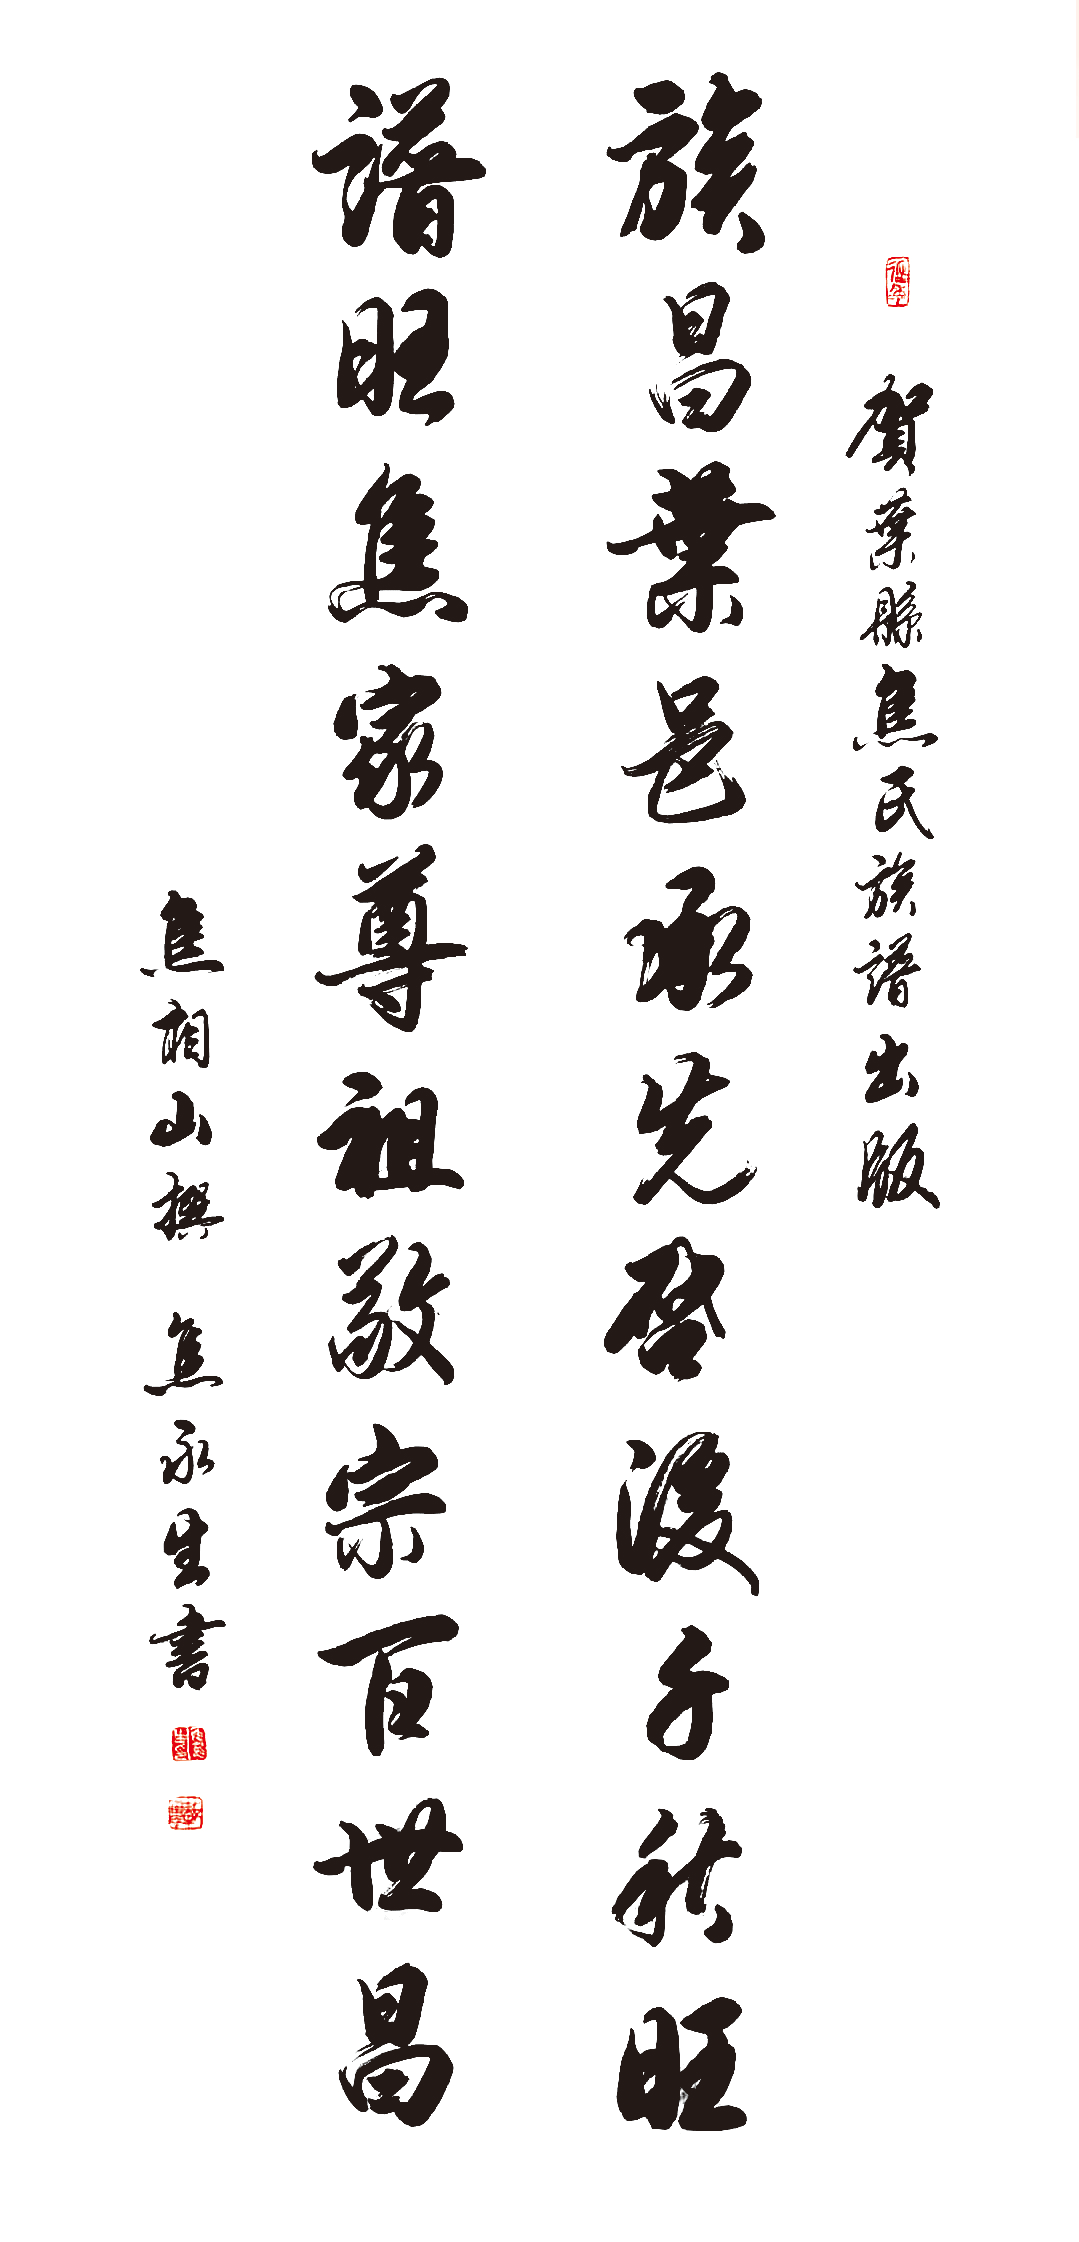 賀葉縣焦氏族譜出版
族昌葉邑承先啓後千秋旺
譜旺焦家尊祖敬宗百世昌
焦相山撰 焦永生書